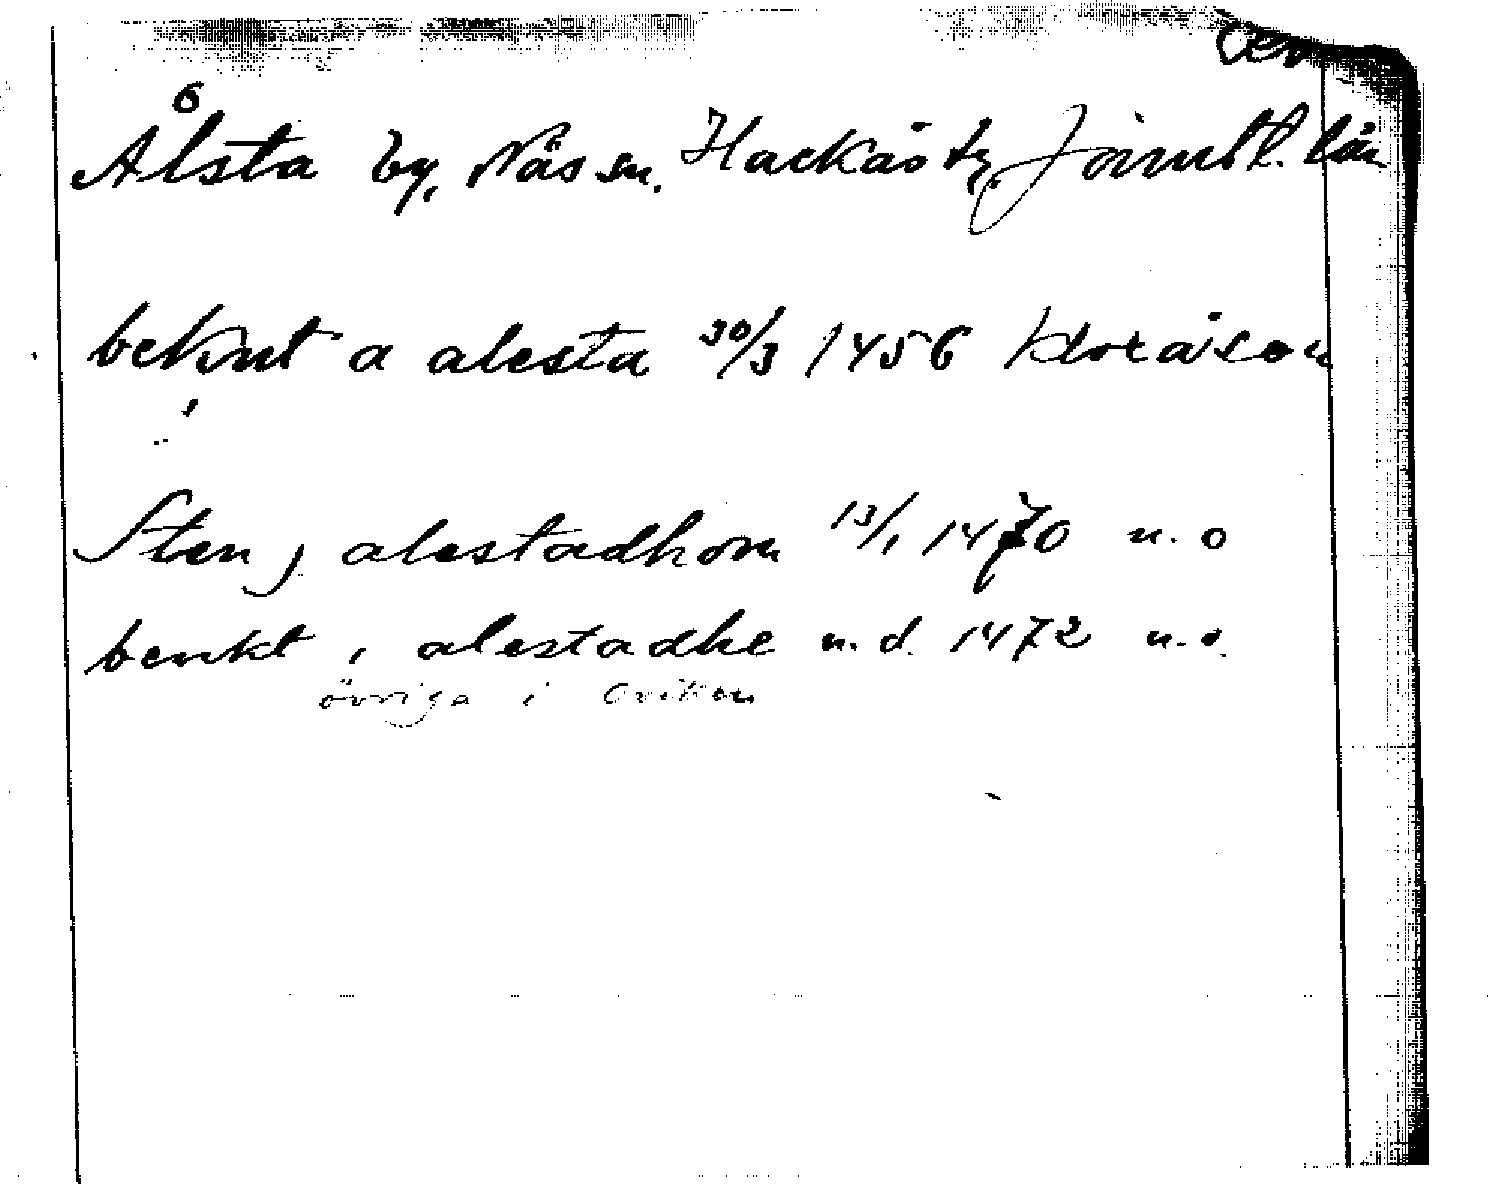 Ålsta by, Näs sn. Hackås tg Jämtl. län
beknt a alesta 30/3 1456 Kloråsen
Sten j alestadhom 13/1 1470 n.o
benkt i alestadhe u.d. 1472 n.o.
övriga i Oviken